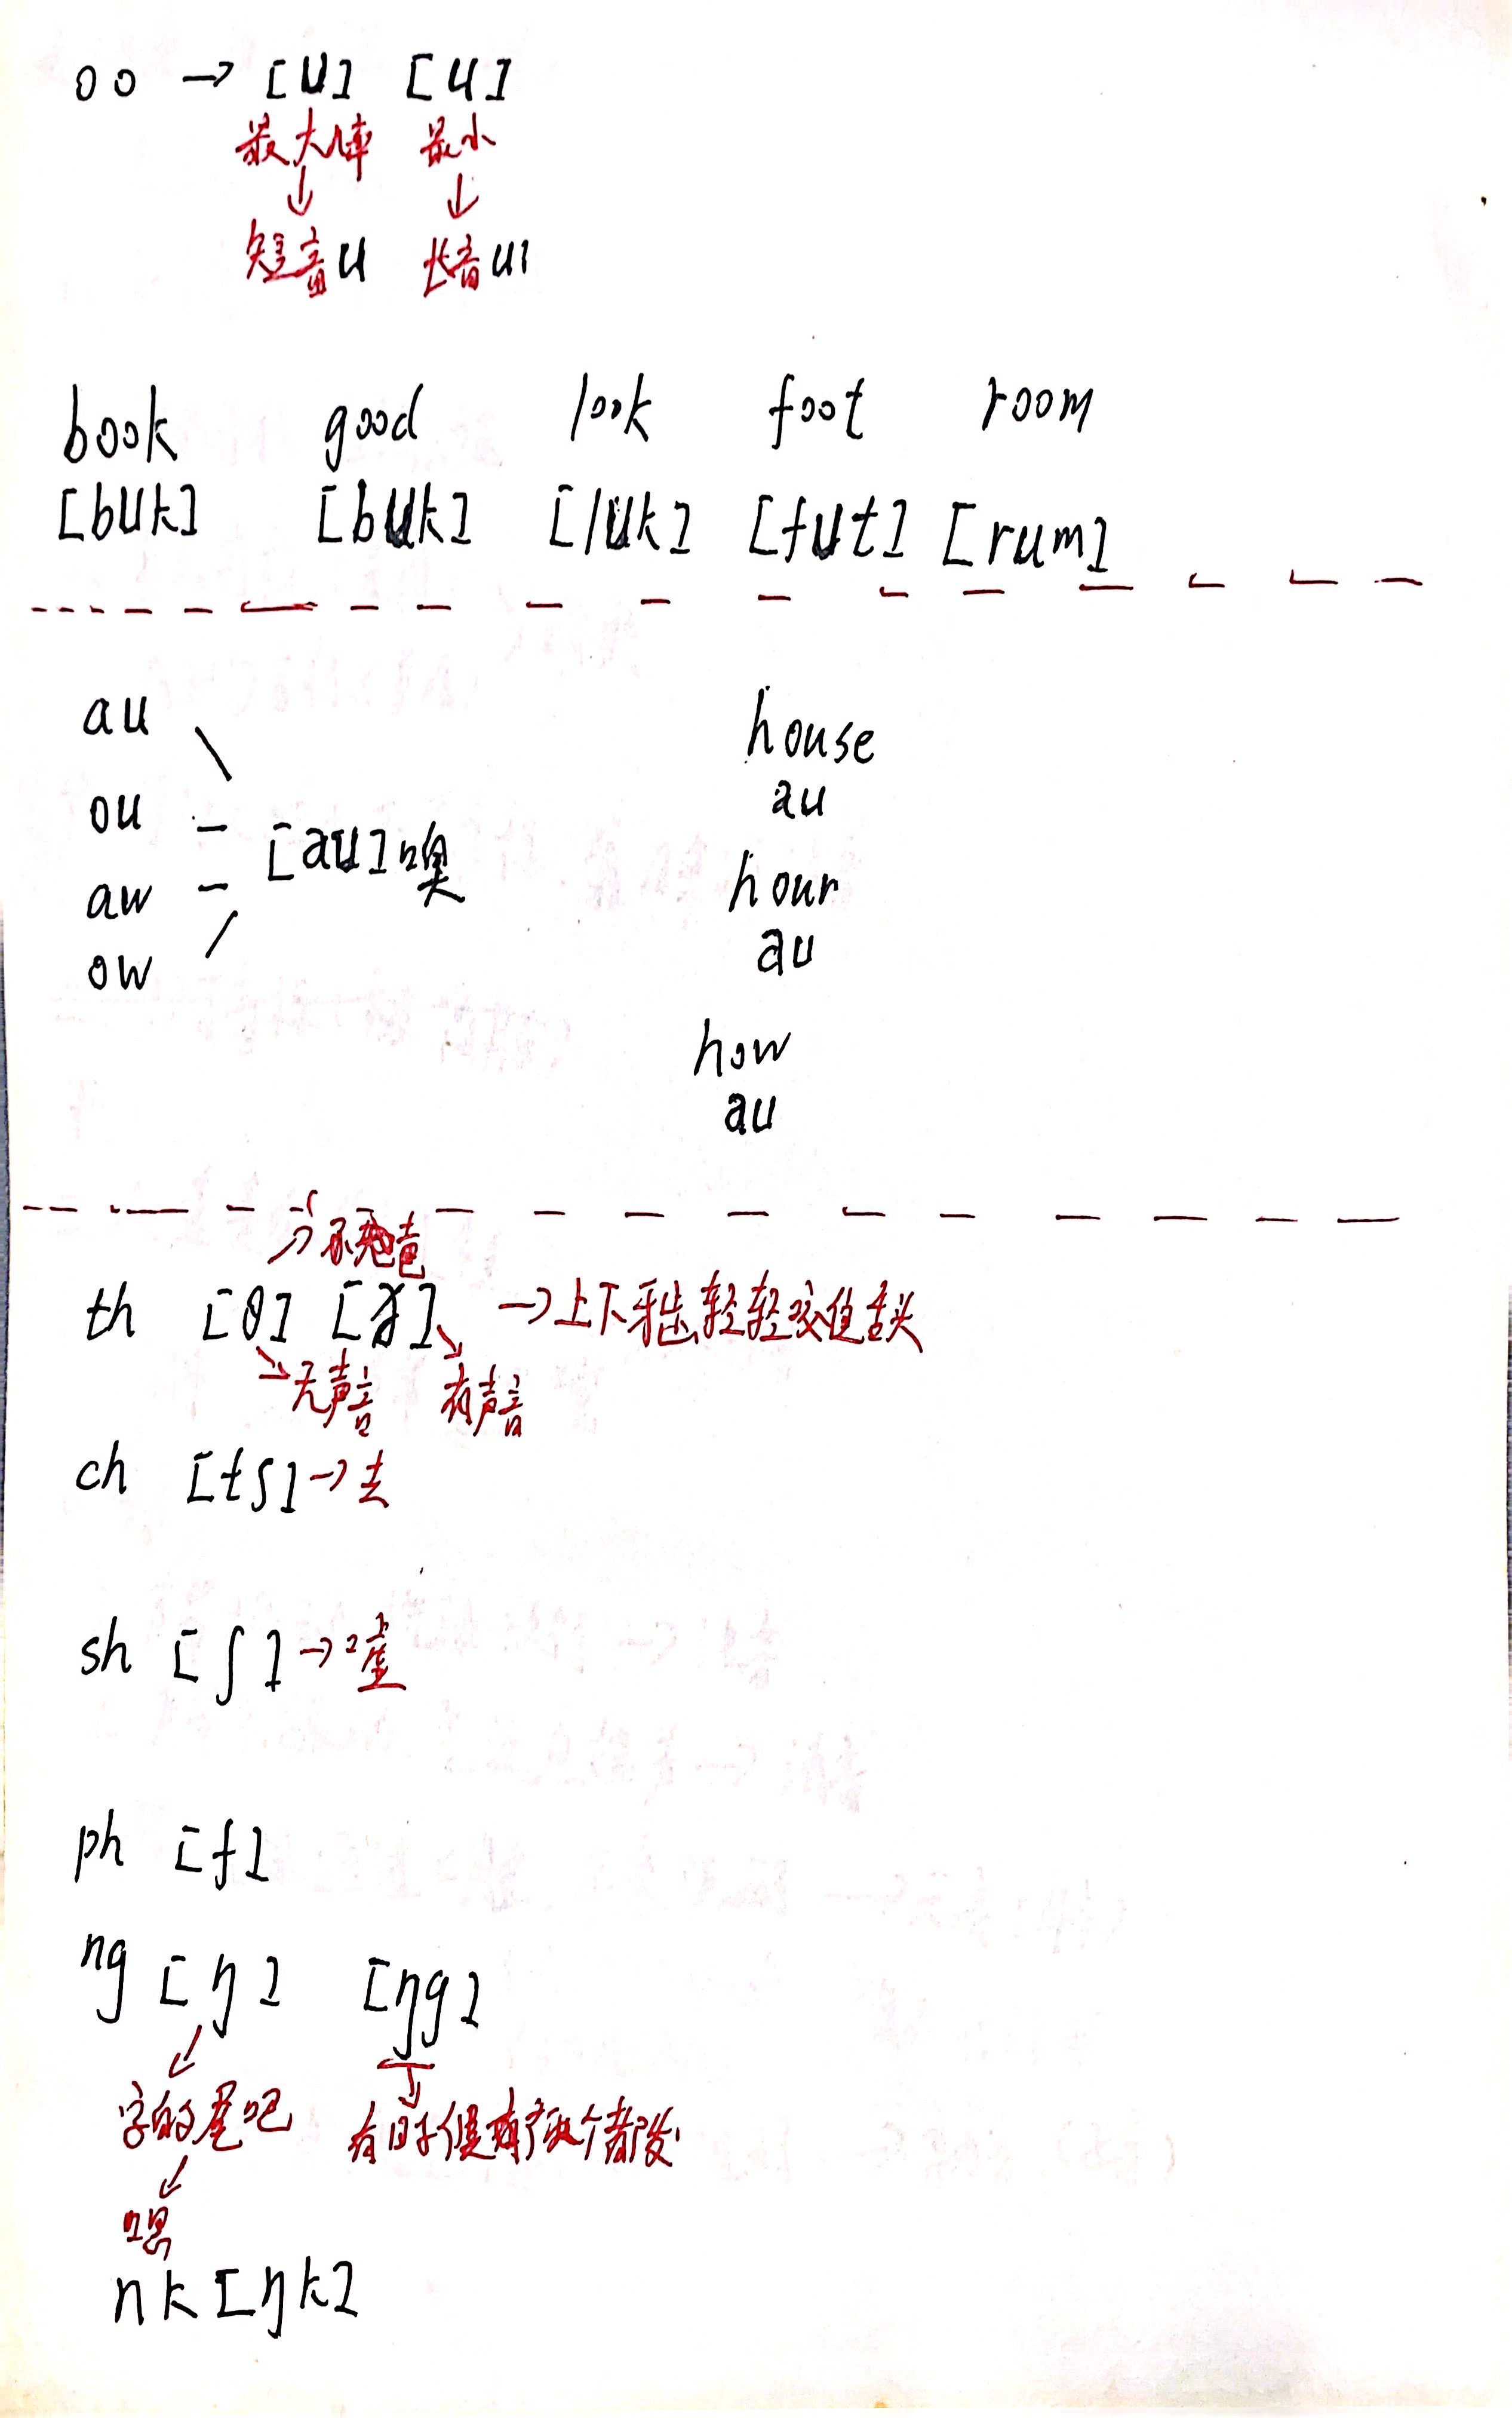 oo → [U] [u]
最大率 最小
↓ ↓
短音u 长音u1
book good look foot room
[bUk] [bUk] [lUk] [fUt] [rum]
au
ou
aw
ow
[au] 噢
house
au
hour
au
how
au
不
th [θ] [ð] → 上下牙齿轻轻咬住舌头
→ 无声音 有声音
ch [tʃ] → 去
sh [ʃ] → 嘘
ph [f]
ng [ŋ] [ŋg]
字的尾吧 有时候两个都发
嗯
nk [ŋk]